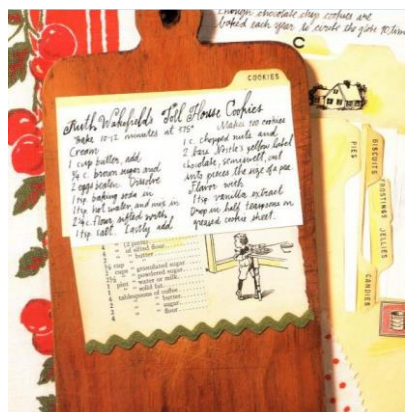 Enough chocolate chip cookies are
baked each year to circle the globe 10 times
C
COOKIES
Ruth Wakefield's Toll House Cookies
Bake 10-12 minutes at 375° Makes 100 cookies
Cream
1 cup butter, add
3/4 c. brown sugar and
2 eggs beaten. Dissolve
1 tsp baking soda in
1 tsp hot water, and mix in
2 1/4 c. flour sifted with
1 tsp salt. Lastly add
1 c. chopped nuts and
2 bars Nestle's yellow label
chocolate, semisweet, cut
into pieces the size of a pea
Flavor with
1 tsp vanilla extract
Drop in half teaspoons on
greased cookie sheet.
" of sifted flour
" butter
cup " granulated sugar
cups " powdered sugar
pint " water or milk
" solid fat
tablespoons of coffee
" " butter
" " sugar
" " flour
BISCUITS
PIES
FROSTINGS
JELLIES
CANDIES